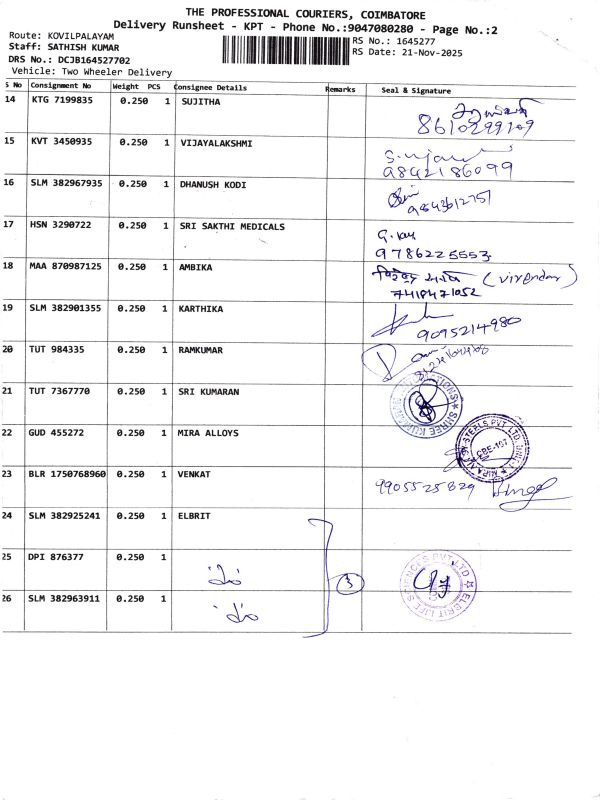 THE PROFESSIONAL COURIERS, COIMBATORE
Delivery Runsheet - KPT - Phone No.:9047080280 - Page No.:2
Route: KOVILPALAYAM
Staff: SATHISH KUMAR
DRS No.: DCJB164527702
Vehicle: Two Wheeler Delivery
RS No.: 1645277
RS Date: 21-Nov-2025
S No Consignment No Weight PCS Consignee Details Remarks Seal & Signature
14 KTG 7199835 0.250 1 SUJITHA
8610299109
15 KVT 3450935 0.250 1 VIJAYALAKSHMI
9842186099
16 SLM 382967935 0.250 1 DHANUSH KODI
17 HSN 3290722 0.250 1 SRI SAKTHI MEDICALS
9786225553
18 MAA 870987125 0.250 1 AMBIKA
(Virendar)
7418471052
19 SLM 382901355 0.250 1 KARTHIKA
9095214980
20 TUT 984335 0.250 1 RAMKUMAR
21 TUT 7367770 0.250 1 SRI KUMARAN
22 GUD 455272 0.250 1 MIRA ALLOYS
CBE-107
23 BLR 1750768960 0.250 1 VENKAT
9905525829
24 SLM 382925241 0.250 1 ELBRIT
25 DPI 876377 0.250 1
3
ELBRIT LIFE SCIENCES PVT LTD
26 SLM 382963911 0.250 1